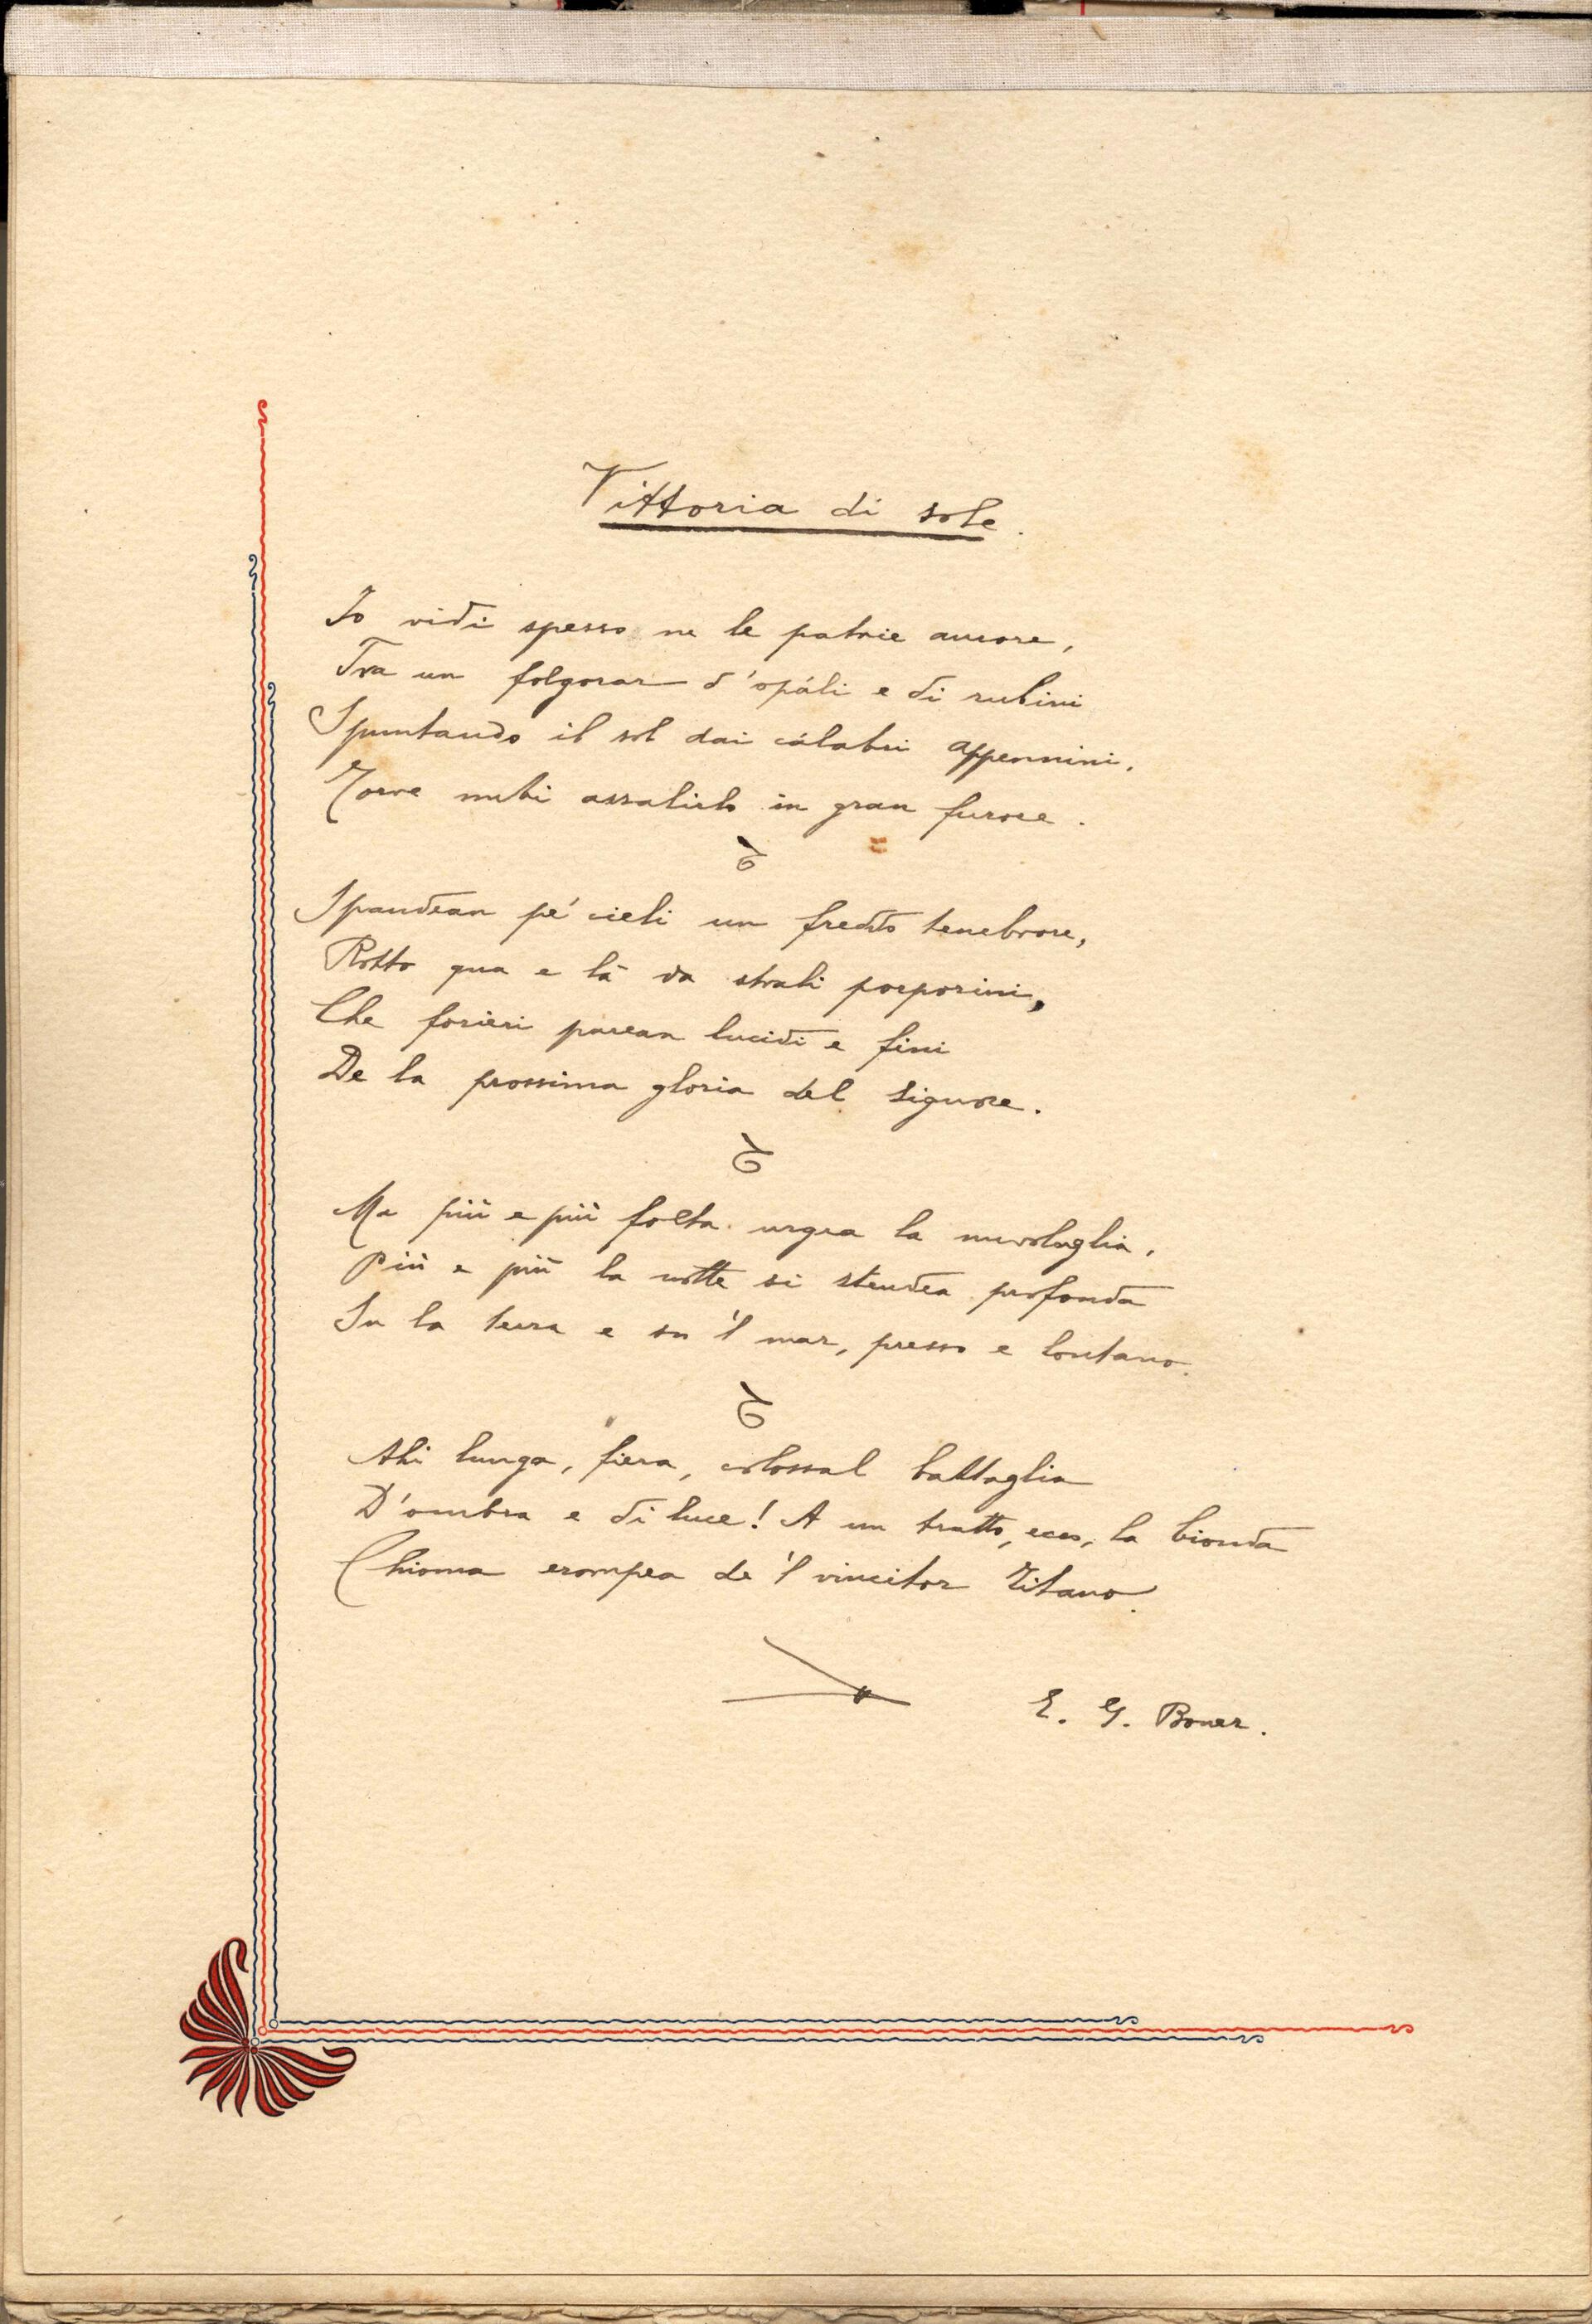 Vittoria di sole.
Io vidi spesso ne le patrie aurore,
Tra un folgorar d'opáli e di rubini
Spuntando il sol dai cálabri appennini,
Torve nubi assalirlo in gran furore.
Spandean pe' cieli un freddo tenebrore,
Rotto qua e là da strali porporini,
Che forieri parean lucidi e fini
De la prossima gloria del Signore.
Ma più e più folta urgea la nuvolaglia,
Più e più la notte si stendea profonda
Su la terra e su 'l mar, presso e lontano.
Ahi lunga, fiera, colossal battaglia
D'ombra e di luce! A un tratto, ecco, la bionda
Chioma erompea de 'l vincitor Titano.
E. G. Boner.